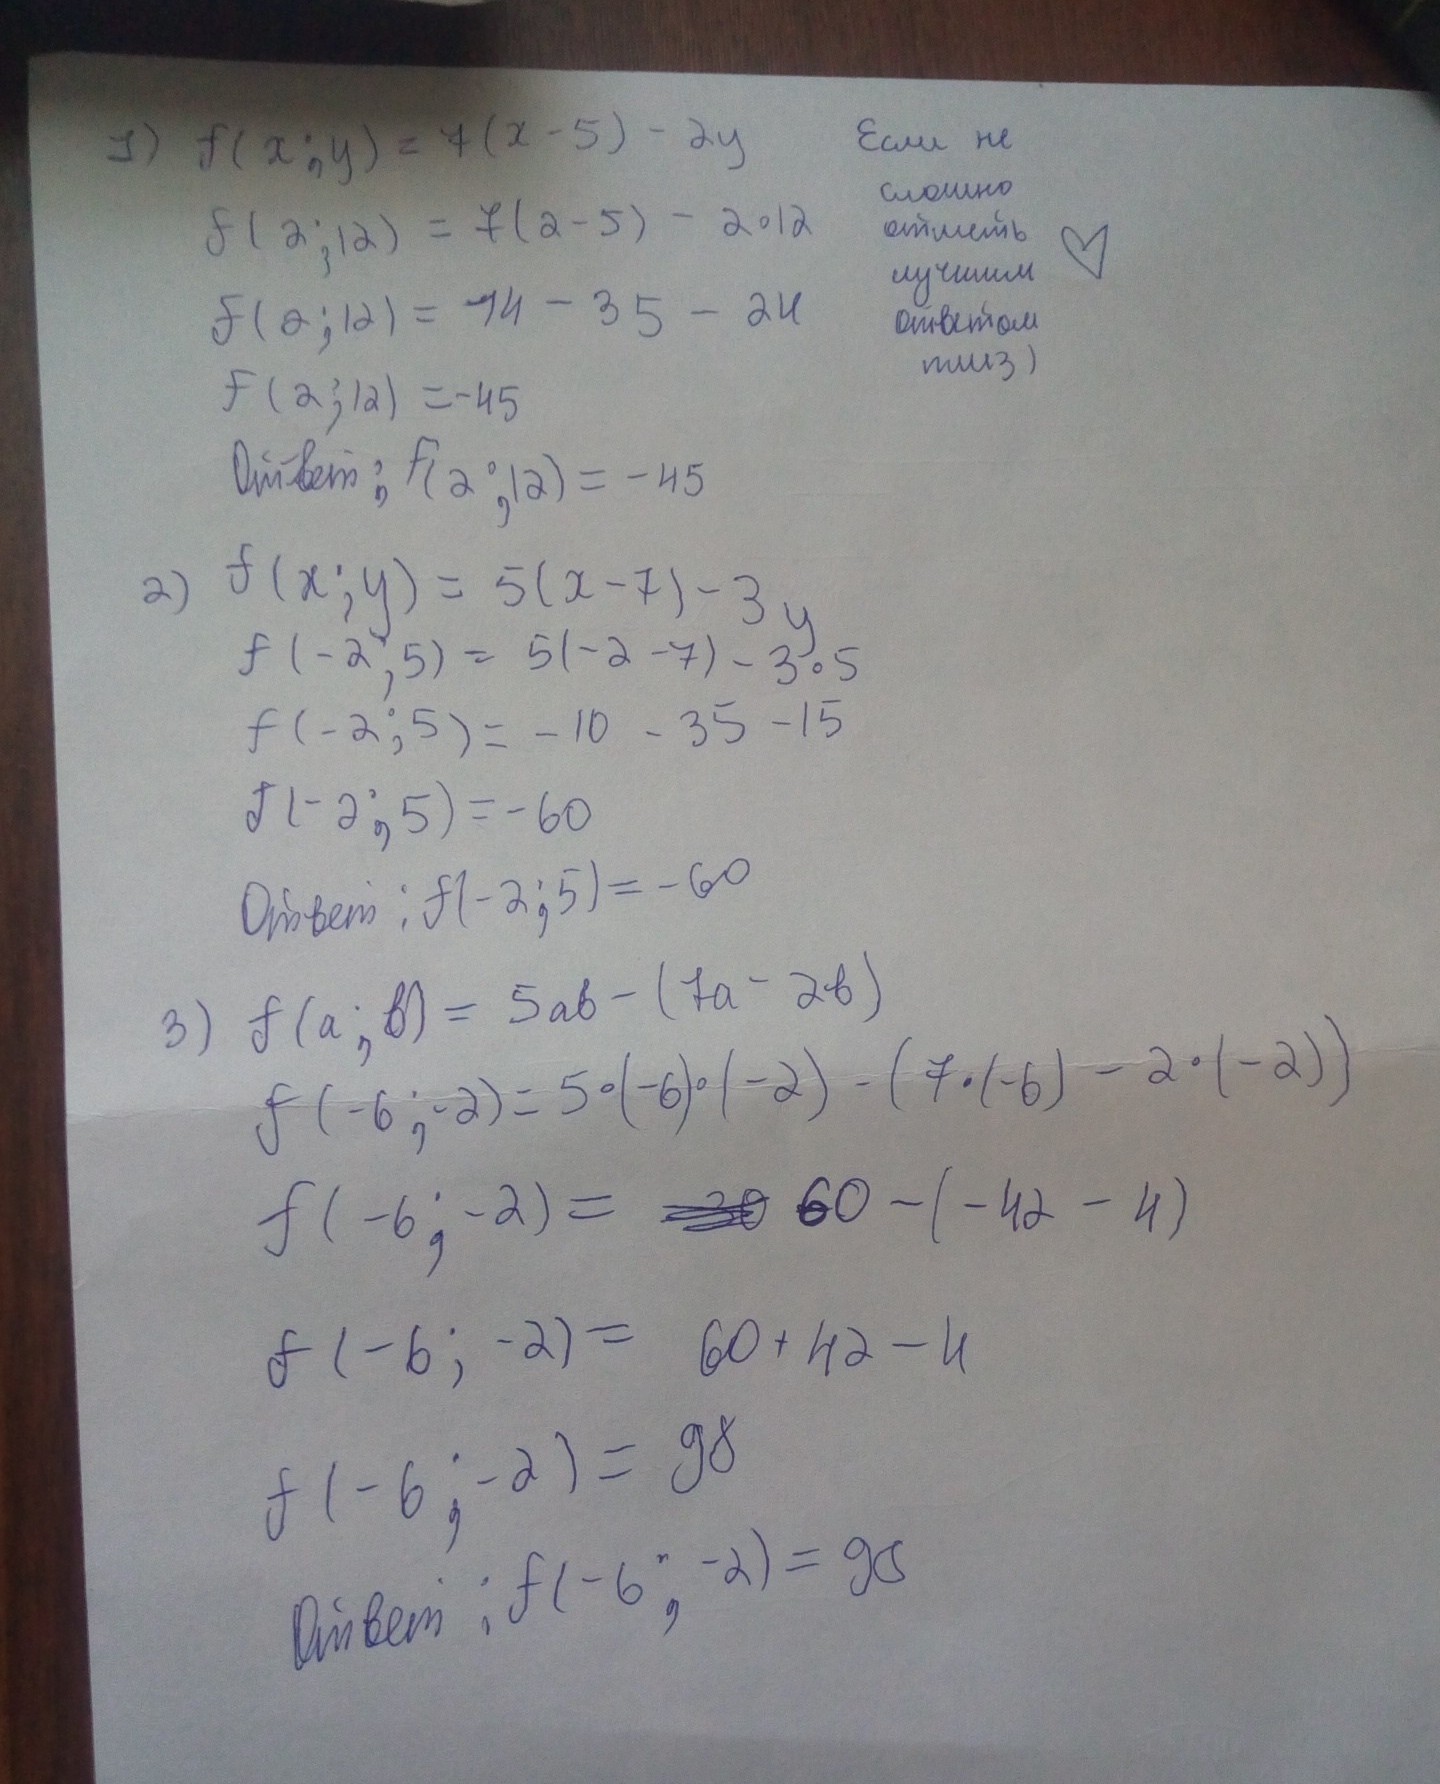 1) f(x;y) = 7(x-5) - 2y
f(2;12) = 7(2-5) - 2•12
f(2;12) = 14 - 35 - 24
f(2;12) = -45
Ответ: f(2;12) = -45
Если не
сложно
отметь
лучшим
ответом
плиз)
2) f(x;y) = 5(x-7) - 3y
f(-2;5) = 5(-2-7) - 3•5
f(-2;5) = -10 - 35 - 15
f(-2;5) = -60
Ответ: f(-2;5) = -60
3) f(a;b) = 5ab - (7a - 2b)
f(-6;-2) = 5•(-6)•(-2) - (7•(-6) - 2•(-2))
f(-6;-2) = 60 - (-42 - 4)
f(-6;-2) = 60 + 42 - 4
f(-6;-2) = 98
Ответ: f(-6;-2) = 98